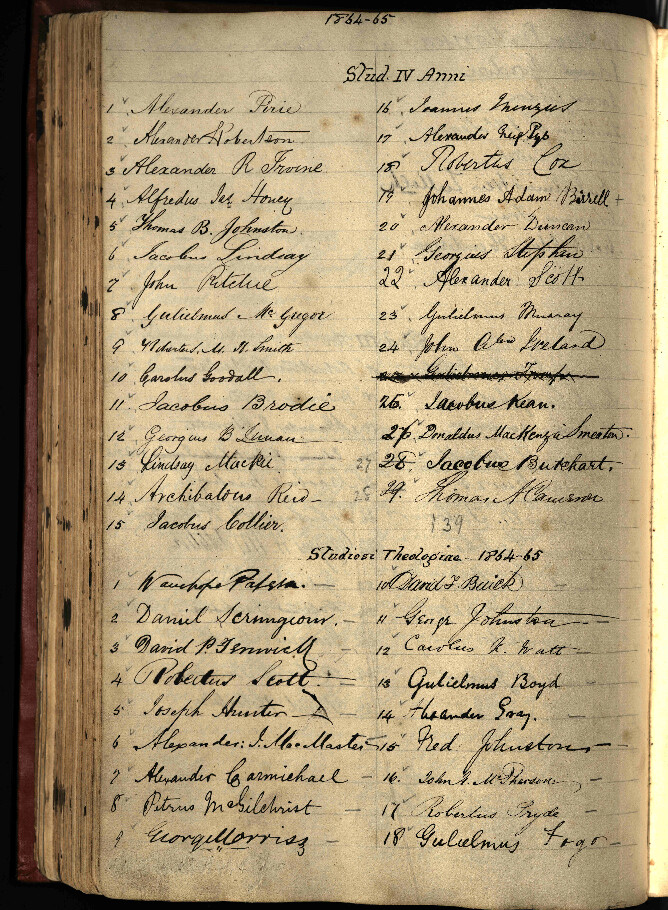 1864-65
Stud. IV Anni
1 Alexander Pirie
2 Alexander Robertson
3 Alexander R Irvine
4 Alfredus Jas. Honey
5 Thomas B. Johnston
6 Jacobus Lindsay
7 John Ritchie
8 Gulielmus Mc Gregor
9 M. N. Smith
10 Carolus Goodall.
11 Jacobus Brodie
12 Georgius B
13 Lindsay Mackie
14 Archibaldus Reid
15 Jacobus Collier.
16 Joannes Menzies
17 Alexander Greig
18 Robertus Cox
19 Johannes Adam Birrell +
20 Alexander Duncan
21 Georgius Stephen
22 Alexander Scott
23 Gulielmus Murray
24 John Alexr Ireland
Gulielmus
26. Jacobus Kean.
27 Donaldus MacKenzie Smeaton.
27
28. Jacobus Burkhart.
28
29. Thomas A Cameron
139
Studiosi Theologiae 1864-65
1 Wauchope
2 Daniel Scrimgeour.
3 David P. Fenwick
4 Robertus Scott
5 Joseph Hunter
6 Alexander. J. MacMaster
7 Alexander Carmichael
8 Petrus McGilchrist
9 George Morris
10 David F. Buick
11 George Johnston
12 Carolus N. Watt
13 Gulielmus Boyd
14 Alexander Gray.
15 Fred. Johnstone
16. John A. McPherson
17 Robertus Fryde
18 Gulielmus Fogo